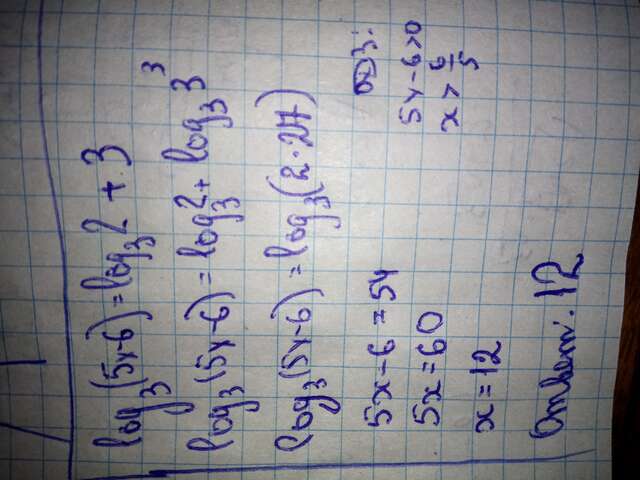 log₃(5x-6)=log₃2+3
log₃(5x-6)=log₃2+log₃3³
log₃(5x-6)=log₃(2·27)
5x-6=54
5x=60
x=12
Ответ: 12
ОДЗ:
5x-6>0
x>6/5